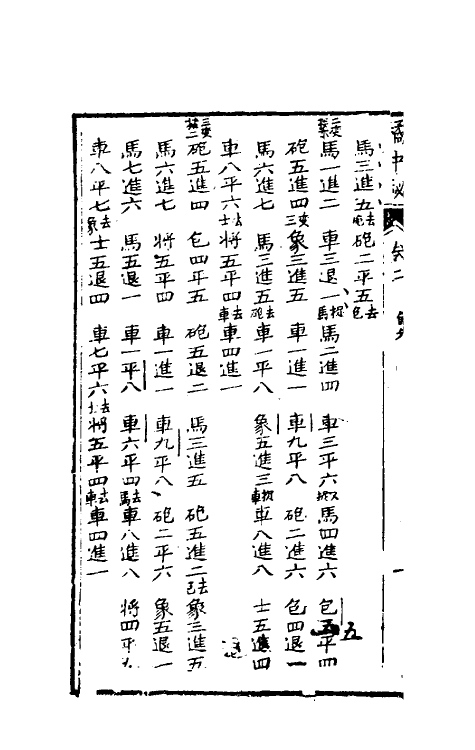 橘中祕 卷二
馬三進五去包 砲二平五去包
馬一進二 車三退一捉馬 馬二進四 車三平六 馬四進六 包五平四
砲五進四三變 象三進五 車一進一 車九平八 砲二進六 包四退一
馬六進七 馬三進五去砲 車一平八 象五進三捉車 車八進八 士五進四
車八平六去士 將五平四去車 車四進一
三變 砲五進四 包四平五 砲五退二 馬三進五 砲五進二去包 象三進五
馬六進七 將五平四 車一進一 車九平八 砲二平六 象五退一
馬七進六 馬五退一 車一平八 車六平四去馬 車八進八 將四平
車八平七去象 士五退四 車七平六去士 將五平四去車 車四進一